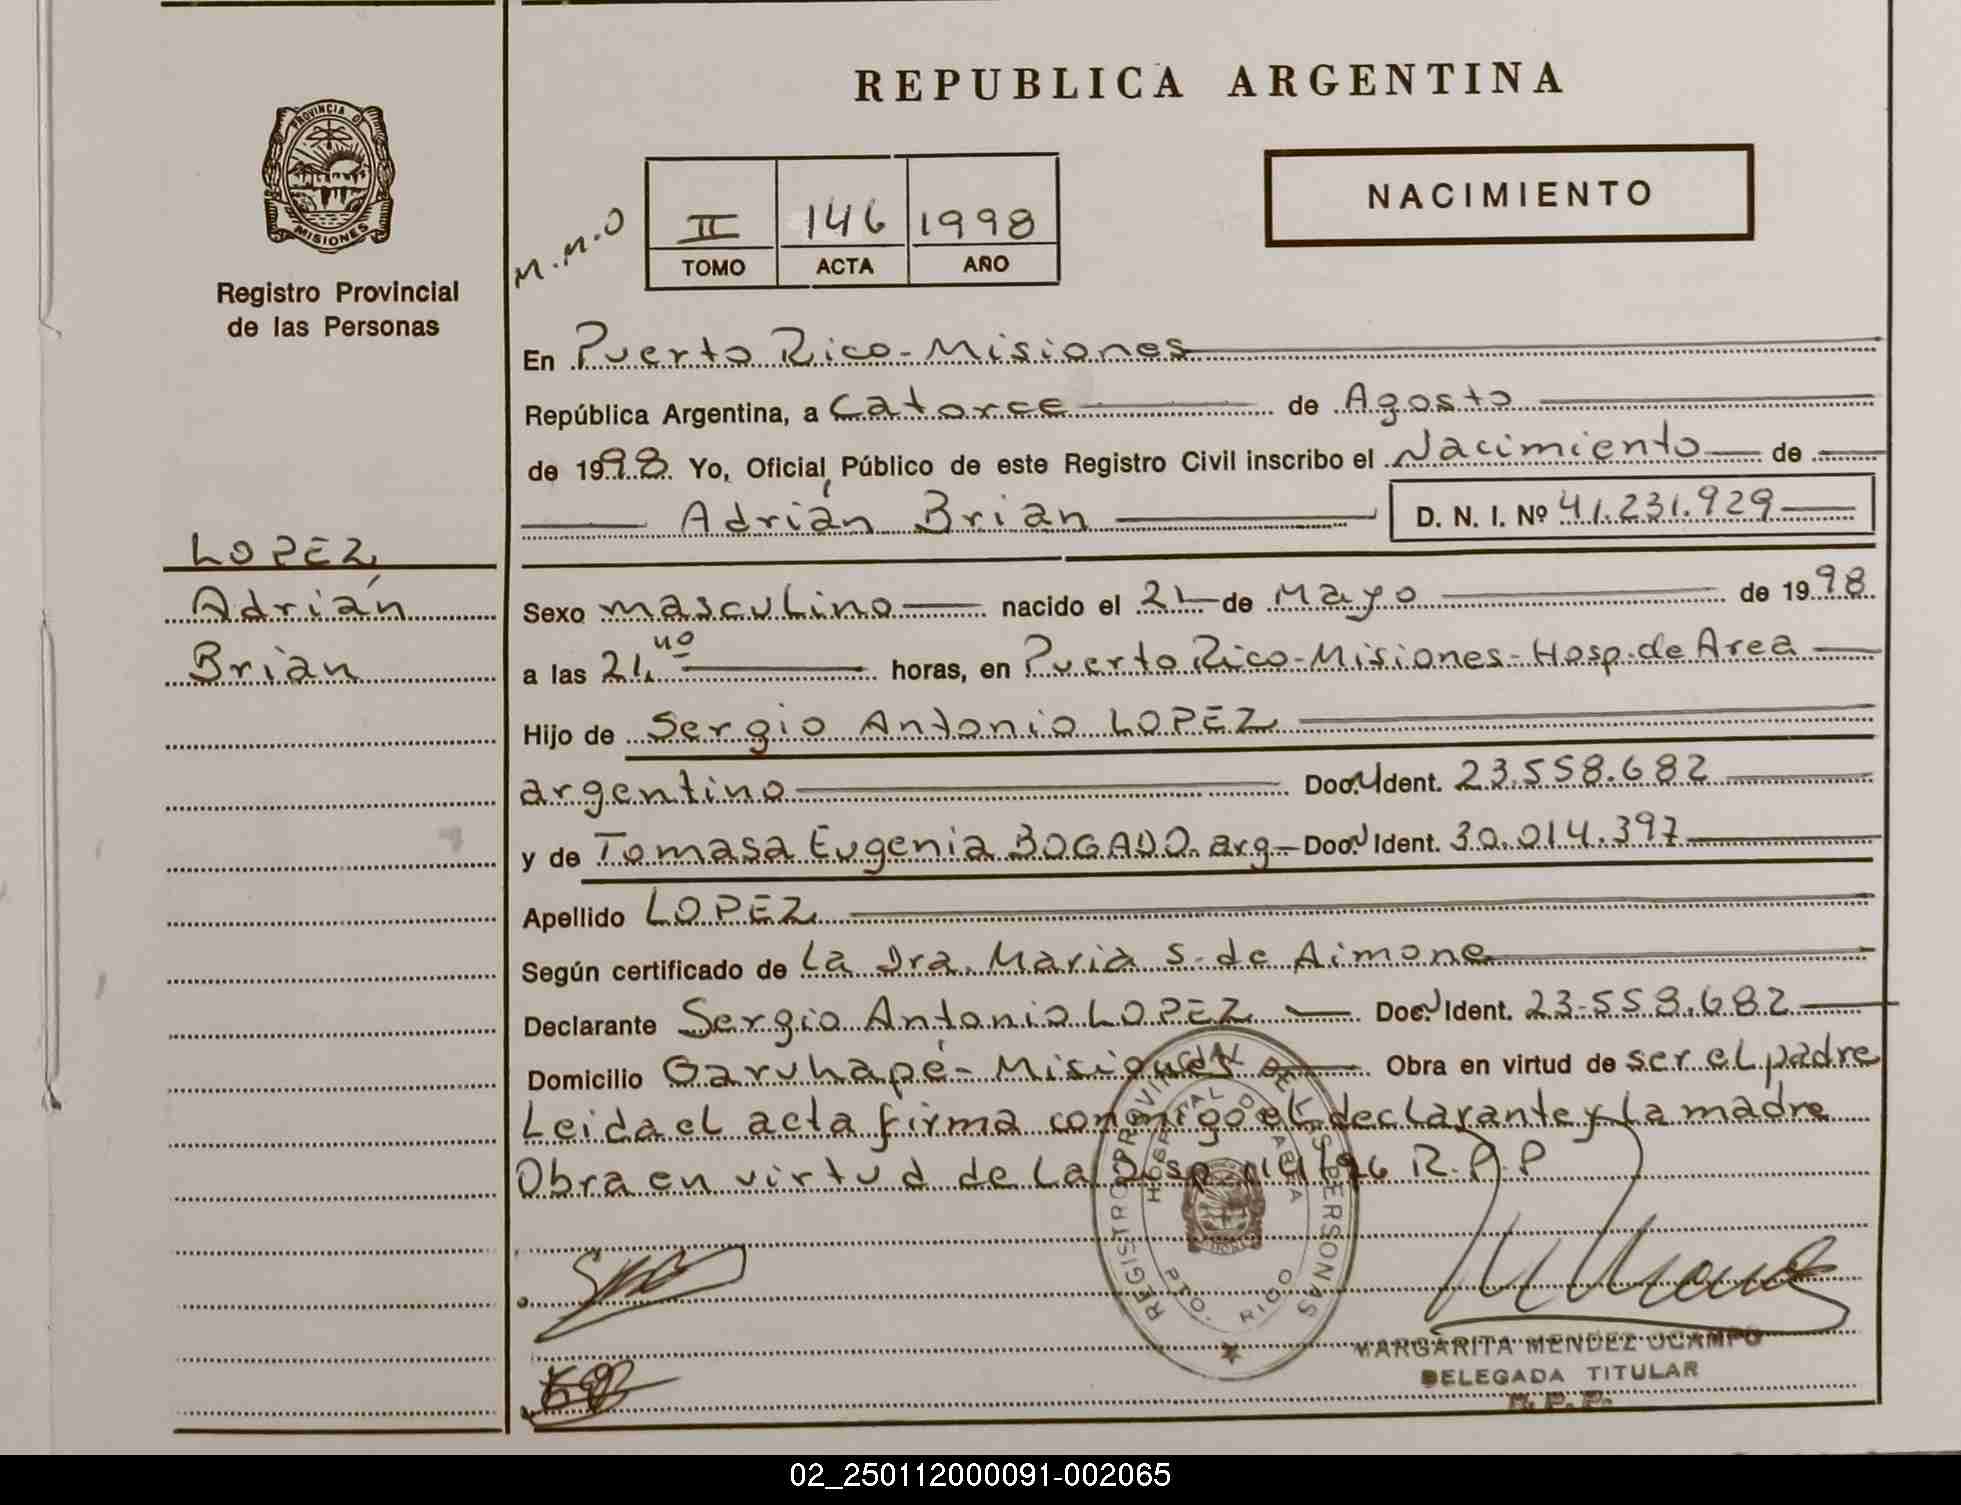 REPUBLICA ARGENTINA
PROVINCIA D
MISIONES
Registro Provincial
de las Personas
NACIMIENTO
M.M.O
II 146 1998
TOMO ACTA AÑO
En Puerto Rico - Misiones
República Argentina, a Catorce de Agosto
de 1998. Yo, Oficial Público de este Registro Civil inscribo el Nacimiento de
Adrián Brian D. N. I. Nº 41.231.929
LOPEZ,
Adrián
Brian
Sexo masculino nacido el 21 de Mayo de 1998
a las 21, horas, en Puerto Rico - Misiones - Hosp. de Area
Hijo de Sergio Antonio LOPEZ
argentino Doc. Ident. 23.558.682
y de Tomasa Eugenia BOGADO. arg. Doc. Ident. 30.014.397
Apellido LOPEZ
Según certificado de La Dra. Maria S. de Aimone
Declarante Sergio Antonio LOPEZ Doc. Ident. 23.558.682
Domicilio Garuhapé - Misiones Obra en virtud de ser el padre
Leida el acta firma conmigo el declarante y la madre
Obra en virtud de la Disp. R.P.P
REGISTRO PROVINCIAL DE LAS PERSONAS
HOSPITAL DE AREA
PTO. RICO
MARGARITA MENDEZ OCAMPO
DELEGADA TITULAR
R.P.P.
02_250112000091-002065